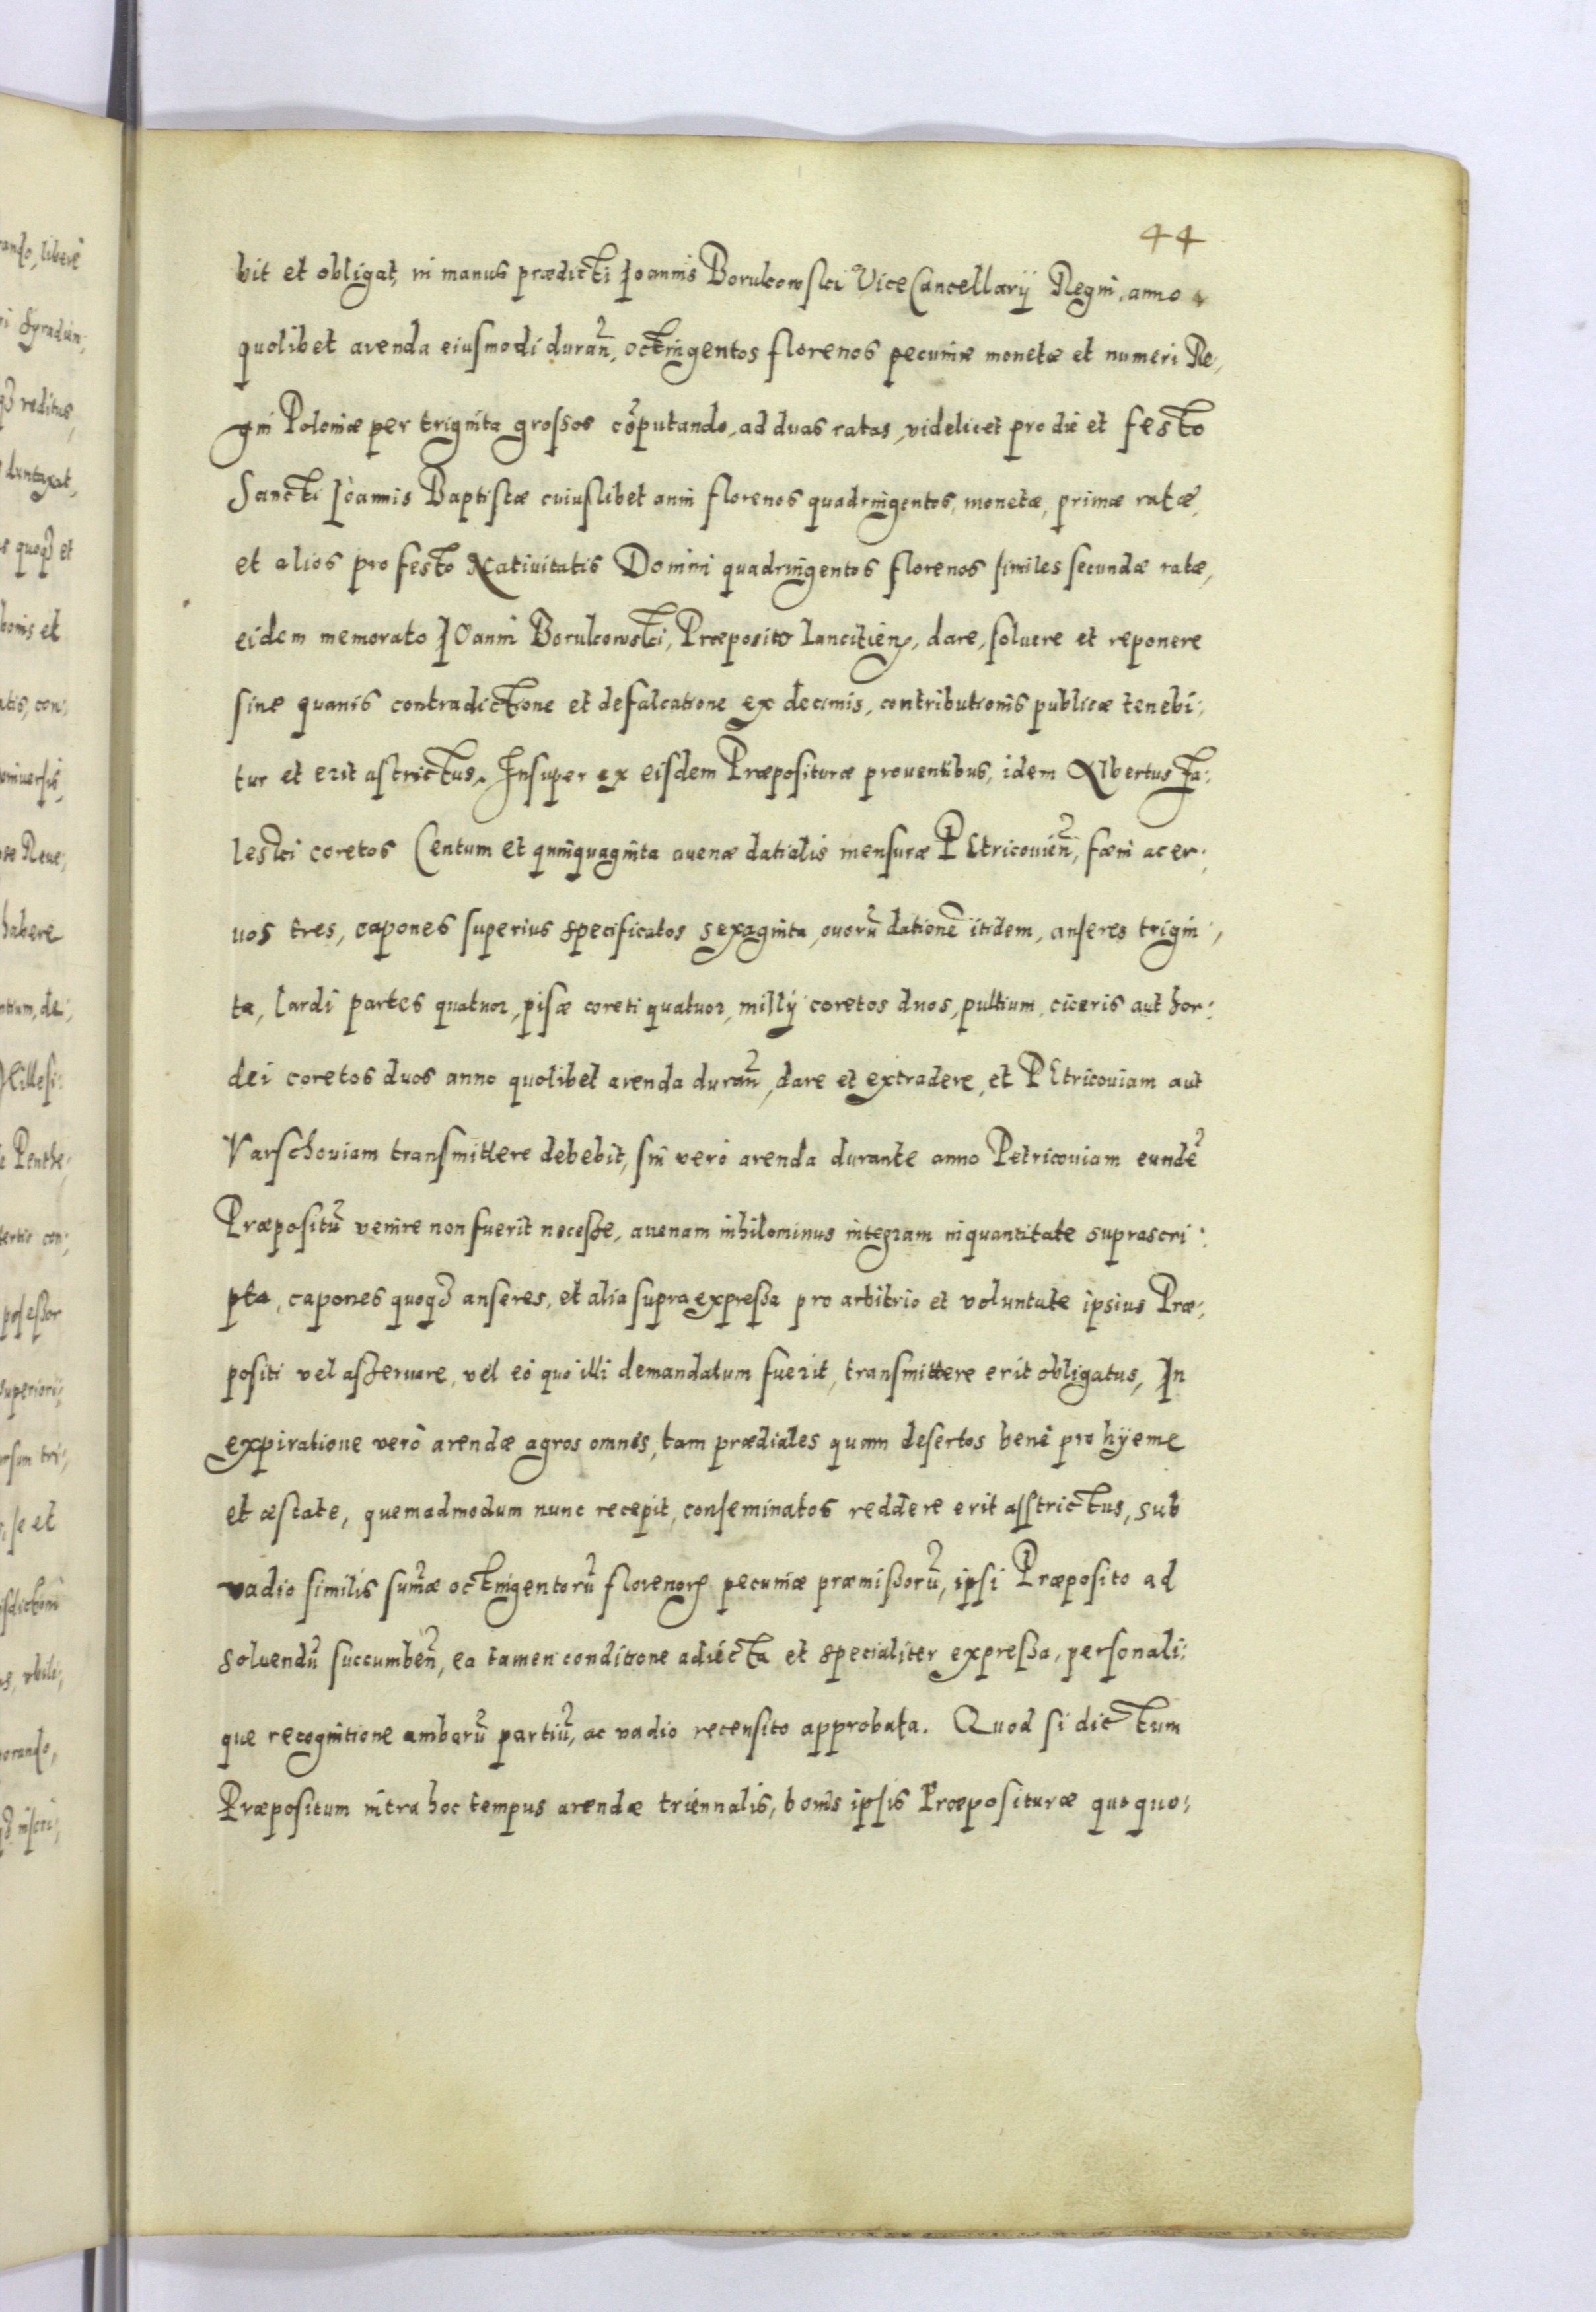 44
bit et obligat, in manus prædicti Joannis Borukowski ViceCancellarij Regni, anno
quolibet arenda eiusmodi durañ, octingentos florenos pecuniæ monetæ et numeri Re,
gni Poloniæ per triginta grossos cõputando, ad duas ratas, videlicet pro die et festo
Sancti Joannis Baptistæ cuiuslibet anni florenos quadringentos, monetæ, primæ ratæ,
et alios pro festo Natiuitatis Domini quadringentos florenos similes secundæ ratæ,
eidem memorato JOanni Borukowski, Præposito Lancitien, dare, soluere et reponere
sine quauis contradictione et defalcatione ex decimis, contributionis publicæ tenebi:
tur et erit astrictus. Insuper ex eisdem Præposituræ prouentibus, idem Albertus Za:
leski coretos Centum et quinquaginta auenæ datialis mensuræ PEtricouieñ, fæni acer:
uos tres, capones superius specificatos sexaginta, ouorũ dationẽ itidem, anseres trigin,
ta, lardi partes quatuor, pisæ coreti quatuor, millij coretos duos, pultium, ciceris aut hor:
dei coretos duos anno quolibet arenda durañ, dare et extradere, et PEtricouiam aut
Varschouiam transmittere debebit, sin verò arenda durante anno Petricouiam eundẽ
Præpositũ venire non fuerit necesse, auenam nihilominus integram in quantitate suprascri:
pta, capones quoqȝ anseres, et alia supra expressa pro arbitrio et voluntate ipsius Præ:
positi vel asseruare, vel eò quo illi demandatum fuerit, transmittere erit obligatus, In
expiratione verò arendæ agros omnes, tam prædiales quam desertos benè pro hyeme
et æstate, quemadmodum nunc recepit, conseminatos reddere erit asstrictus, sub
vadio similis sum̃æ octingentorũ florenorꝫ pecuniæ præmissorũ, ipsi Præposito ad
soluendũ succumbeñ, ea tamen conditione adiecta et specialiter expressa, personali:
que recognitione ambarũ partiũ, ac vadio recensito approbata. Quod si dictum
Præpositum intra hoc tempus arendæ triennalis, bonis ipsis Præposituræ quoquo: